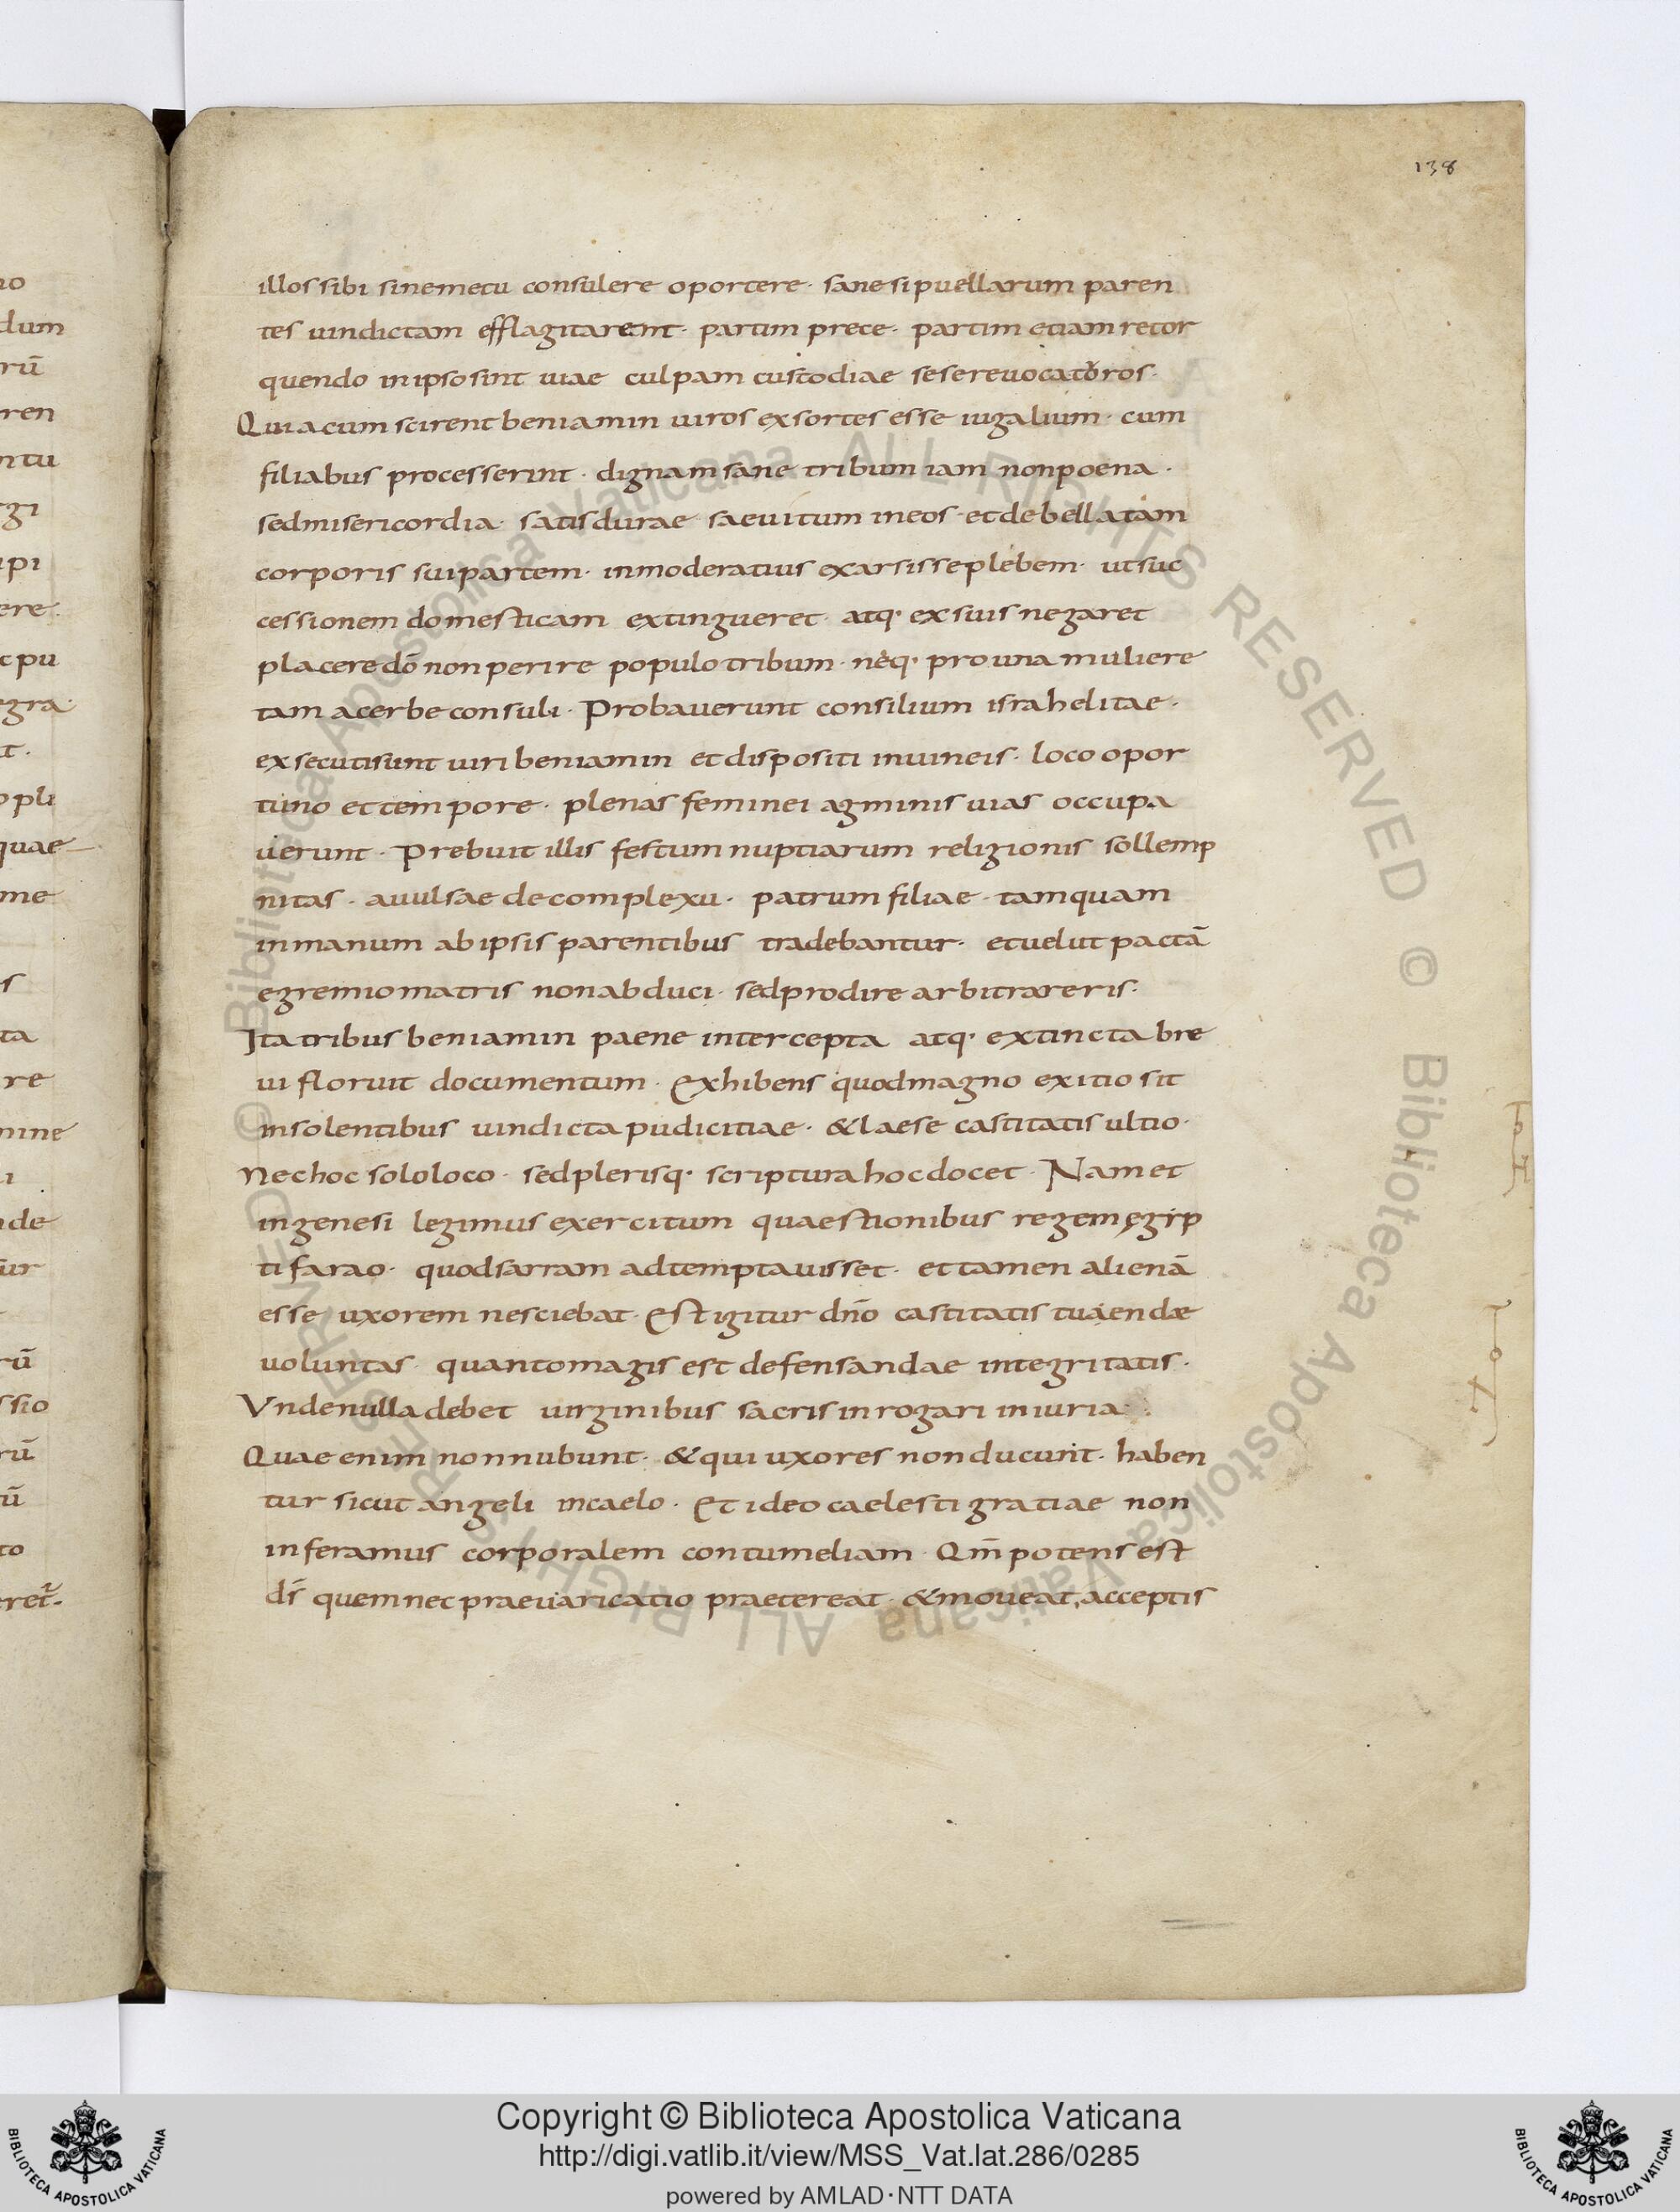 138
illos sibi sine metu consulere oportere · sane si puellarum paren
tes uindictam efflagitarent · partim prece · partim etiam retor
quendo in ipso sint uiae culpam custodiae sese reuocatoros ·
Quia cum scirent beniamin uiros exsortes esse iugalium · cum
filiabus processerint · dignam sane tribum iam non poena ·
sed misericordia · satis durae saeuitum in eos · et debellatam
corporis sui partem · inmoderatius exarsisse plebem · ut suc
cessionem domesticam extingueret · atq· ex suis negaret
placere dō non perire populo tribum · neq· pro una muliere
tam acerbe consuli · Probauerunt consilium israhelitae ·
exsecuti sunt uiri beniamin et dispositi in uineis · loco opor
tuno et tempore · plenas feminei agminis uias occupa
uerunt · Prebuit illis festum nuptiarum religionis sollemp
nitas · auulsae de complexu · patrum filiae · tamquam
in manum ab ipsis parentibus tradebantur · et uelut pactā
e gremio matris non abduci · sed prodire arbitrareris ·
Ita tribus beniamin paene intercepta atq· extincta bre
ui floruit documentum · exhibens quod magno exitio sit
insolentibus uindicta pudicitiae · & laese castitatis ultio ·
Nec hoc solo loco · sed plerisq· scriptura hoc docet · Nam et
in genesi legimus exercitum quaestionibus regem ęgip
ti farao · quod sarram adtemptauisset · et tamen alienā
esse uxorem nesciebat · Est igitur dn̄o castitatis tuaendae
uoluntas · quanto magis est defensandae integritatis ·
Vnde nulla debet uirginibus sacris inrogari iniuria ·
Quae enim non nubunt · & qui uxores non ducunt · haben
tur sicut angeli in caelo · Et ideo caelesti gratiae non
inferamus corporalem contumeliam · Qm̄ potens est
ds̄ quem nec praeuaricatio praetereat · & moueat, acceptis
© Biblioteca Apostolica Vaticana ALL RIGHTS RESERVED © Biblioteca Apostolica Vaticana ALL RIGHTS RESERVED
Copyright © Biblioteca Apostolica Vaticana
http://digi.vatlib.it/view/MSS_Vat.lat.286/0285
powered by AMLAD·NTT DATA
BIBLIOTECA APOSTOLICA VATICANA
BIBLIOTECA APOSTOLICA VATICANA